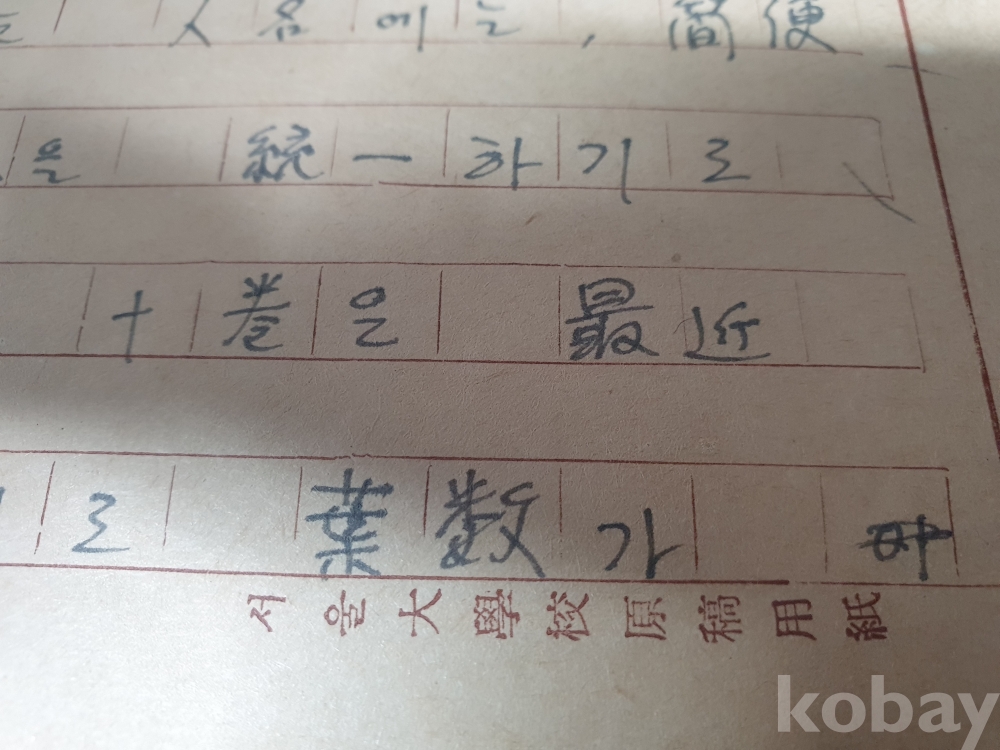 人名에는, 簡便
을 統一하기로
十卷은 最近
로 葉数가
서울大學校原稿用紙
kobay